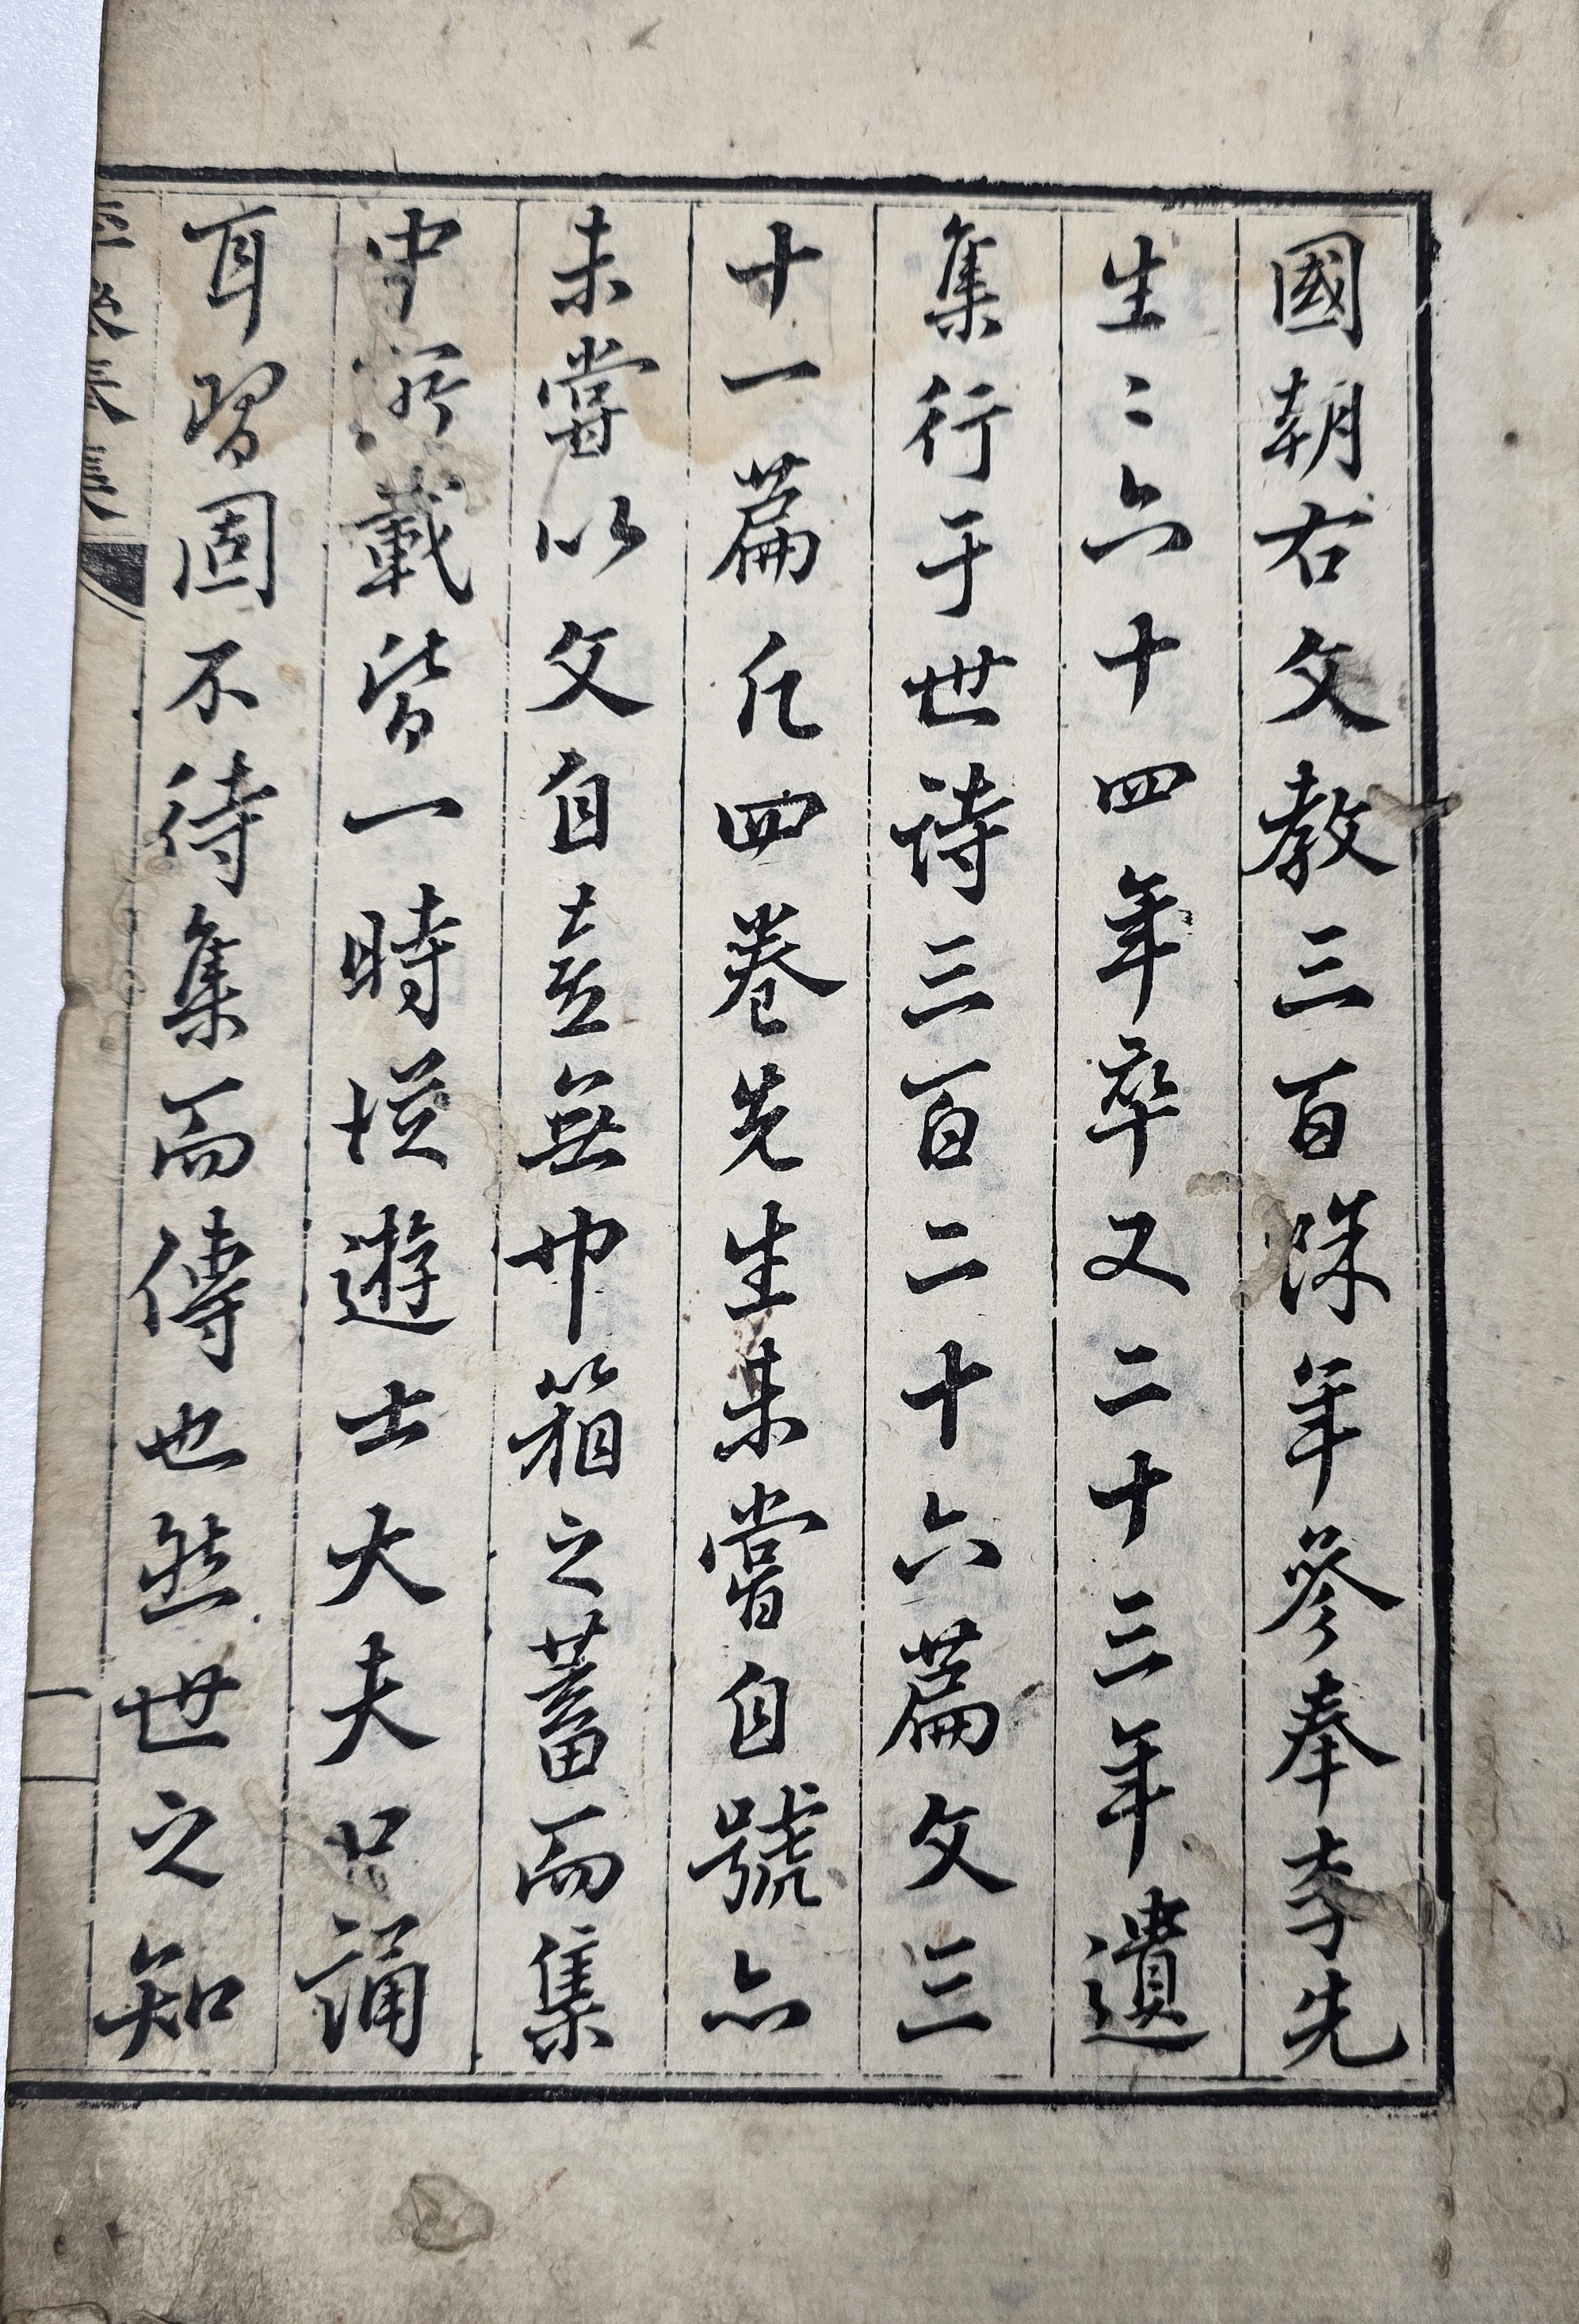 國朝右文教三百餘年參奉李先
生生六十四年卒又二十三年遺
集行于世詩三百二十六篇文三
十一篇凡四卷先生未嘗自號亦
未嘗以文自喜無巾箱之蓄而集
中所載皆一時從遊士大夫口誦
耳習固不待集而傳也然世之知
集
一